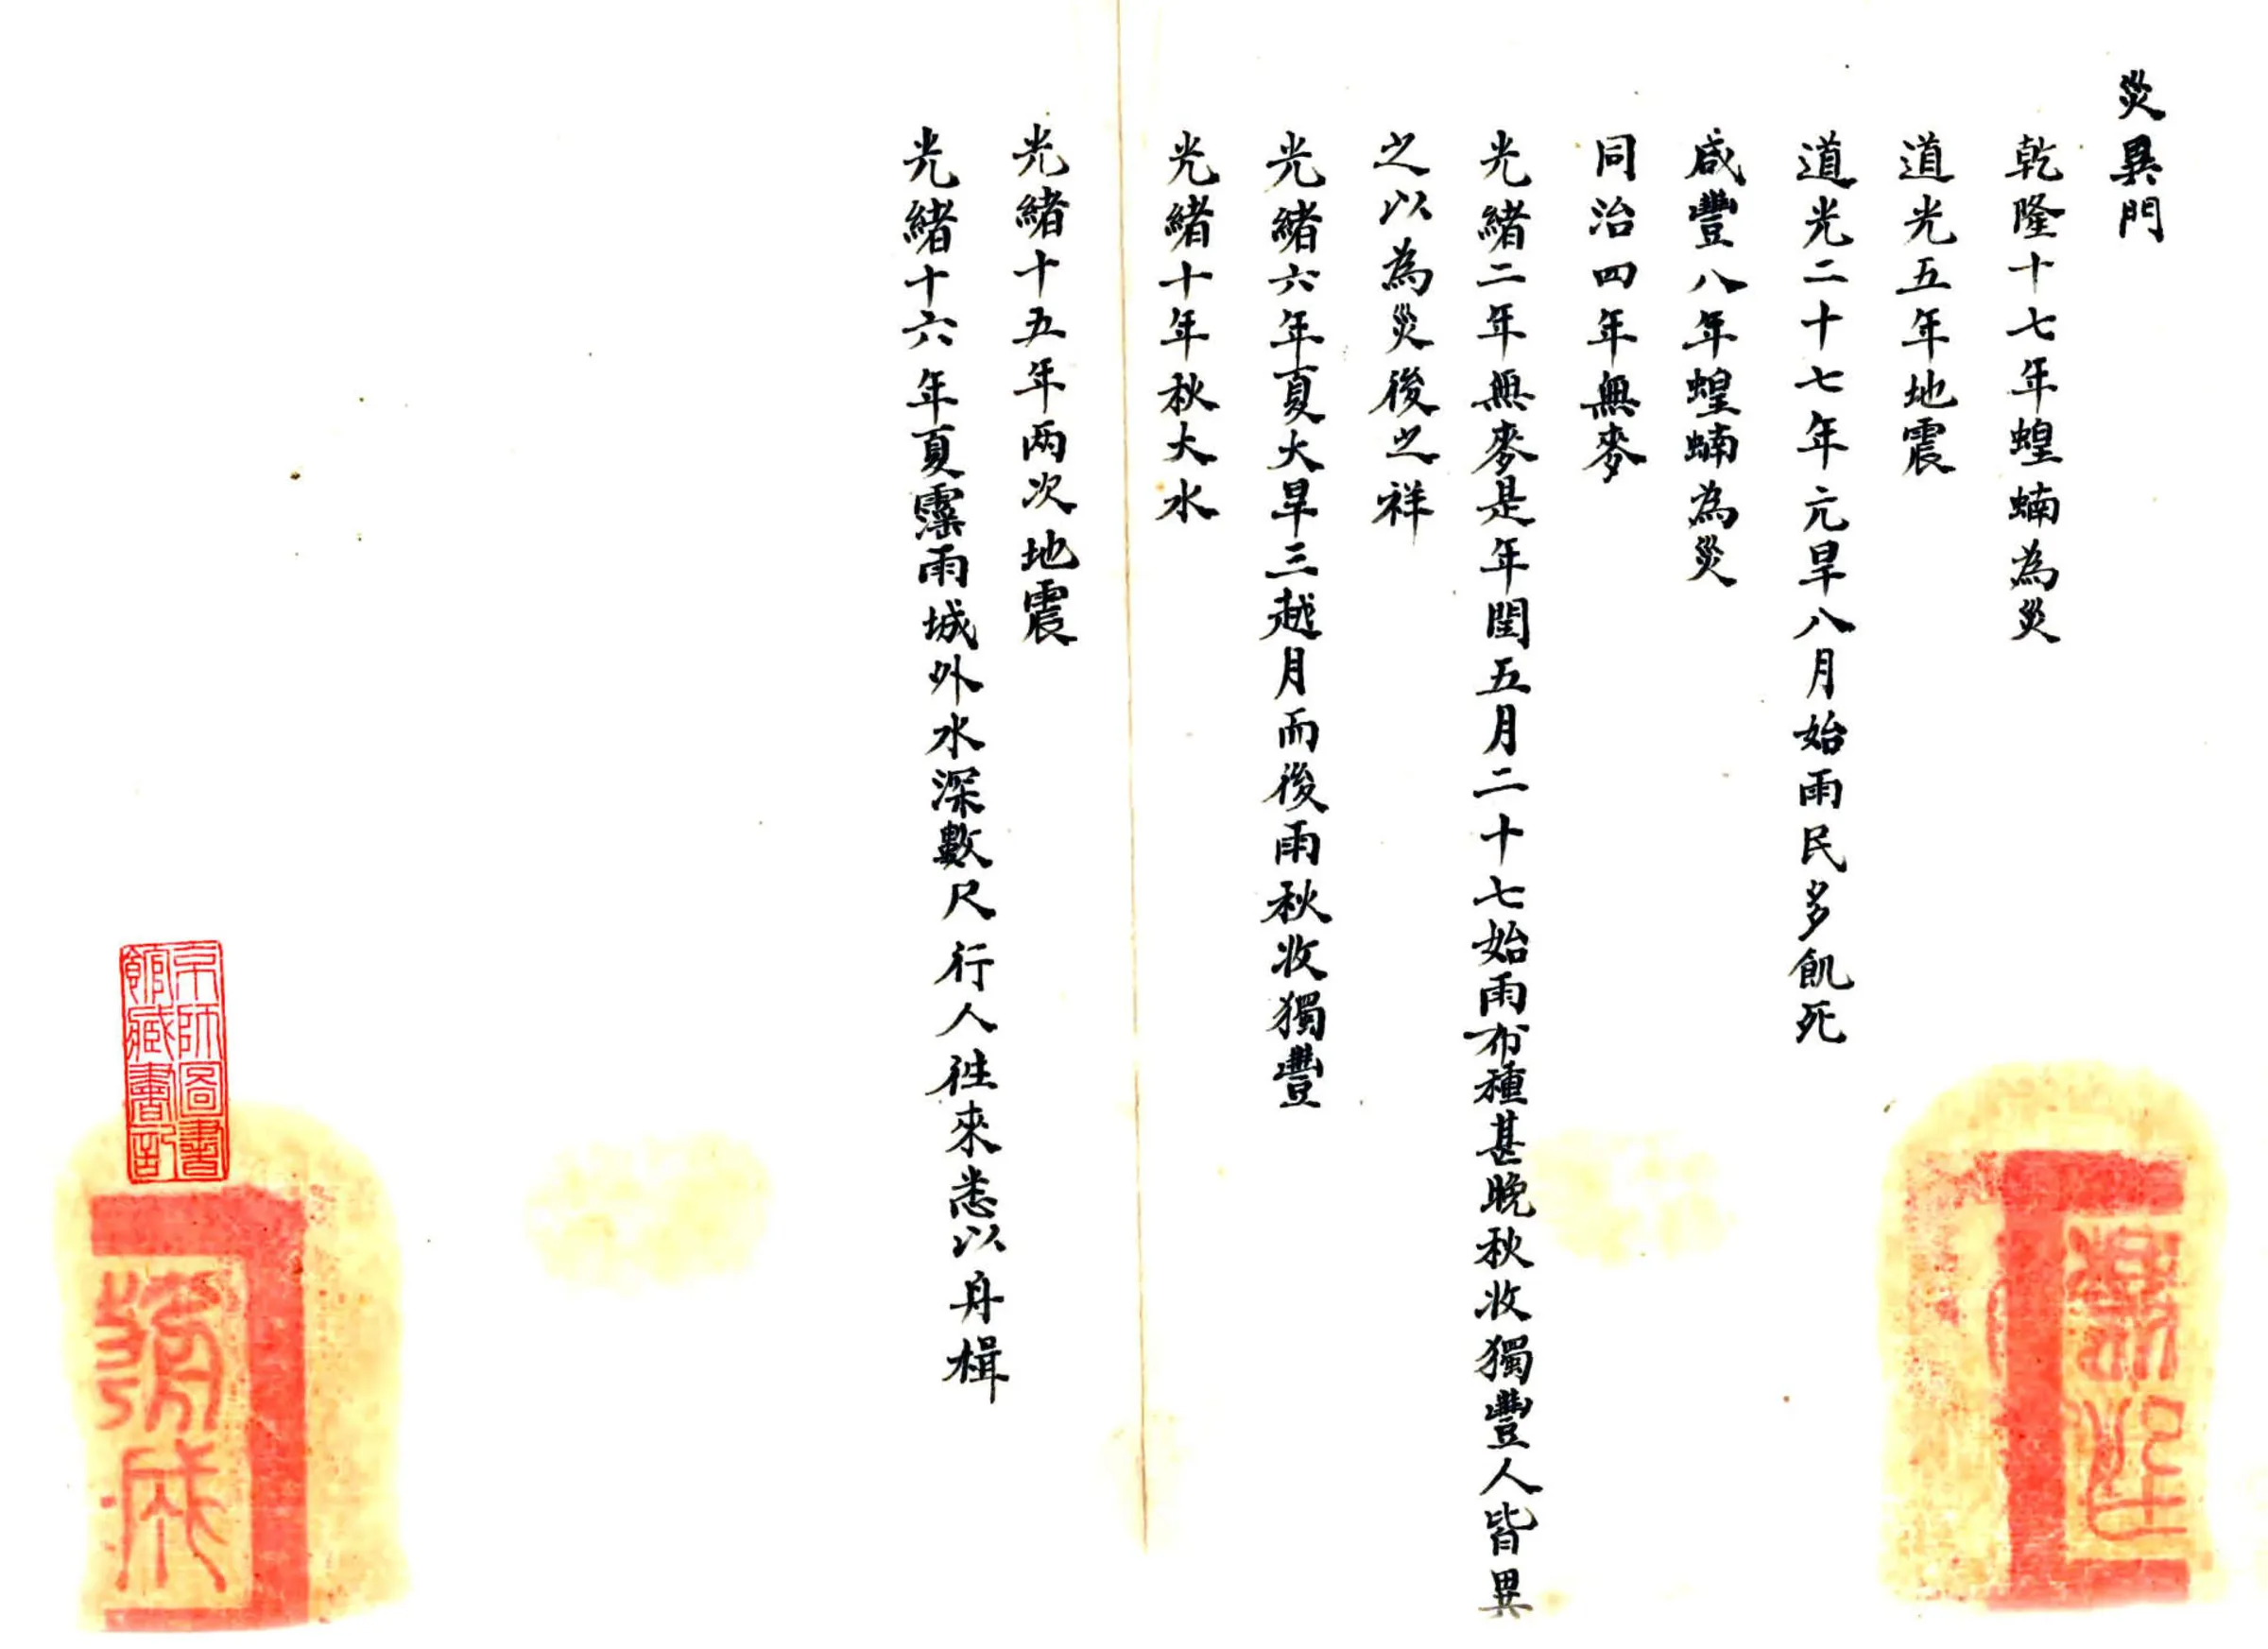 災異門
乾隆十七年蝗蝻為災
道光五年地震
道光二十七年亢旱八月始雨民多飢死
咸豐八年蝗蝻為災
同治四年無麥
光緒二年無麥是年閏五月二十七始雨布種甚晚秋收獨豐人皆異
之以為災後之祥
光緒六年夏大旱三越月而後雨秋收獨豐
光緒十年秋大水
光緒十五年兩次地震
光緒十六年夏霪雨城外水深數尺行人往來悉以舟楫
京師圖書
館藏書記